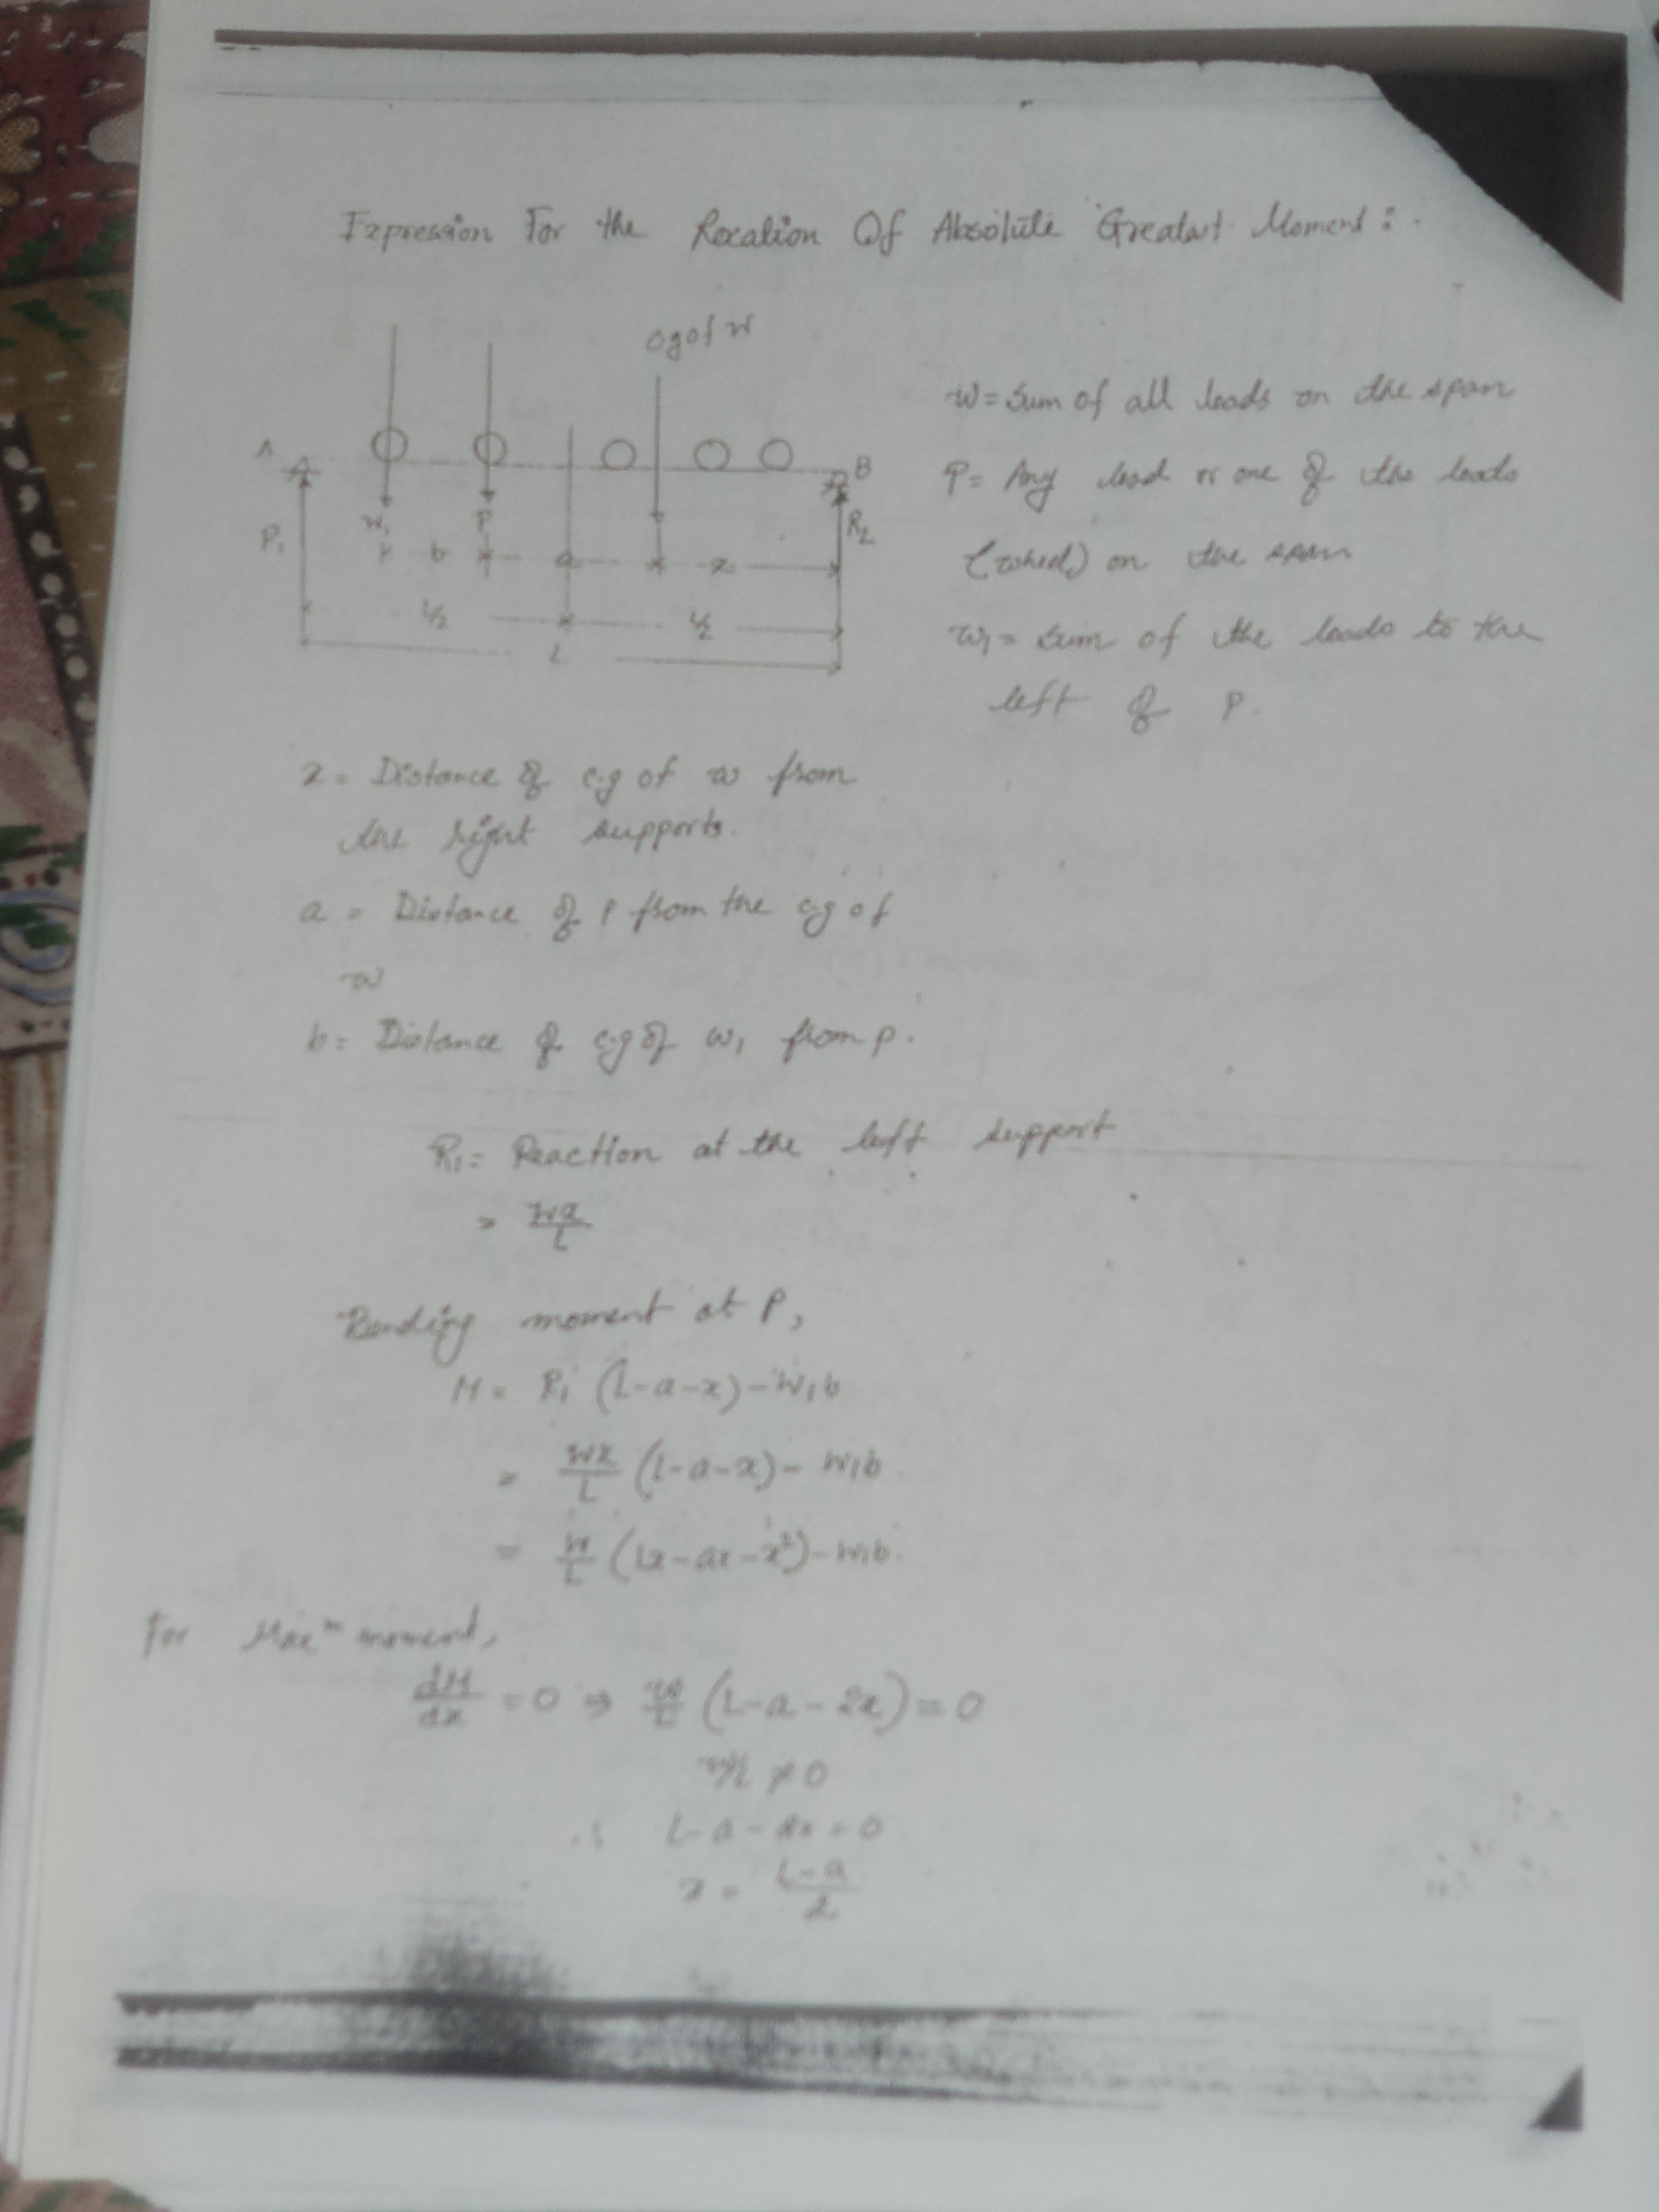 Expression For the Location Of Absolute Greatest Moment :.
cg of W
A
B
P₁
W₁
P
R₂
b
a
x
L/2
L/2
L
W = Sum of all loads on the span
P = Any load or one of the loads
(wheel) on the span
W₁ = Sum of the loads to the
left of P.
x = Distance of c.g of w from
the right supports.
a = Distance of P from the cg of
w
b = Distance of c.g of w₁ from p.
R₁ = Reaction at the left support
= Wx/L
Bending moment at P,
M = R₁ (L-a-x) - W₁b
= Wx/L (L-a-x) - W₁b.
= W/L (Lx-ax-x²) - W₁b.
For Maxᵐ moment,
dM/dx = 0 ⇒ W/L (L-a-2x) = 0
W/L ≠ 0
∴ L-a-2x = 0
x = L-a/2